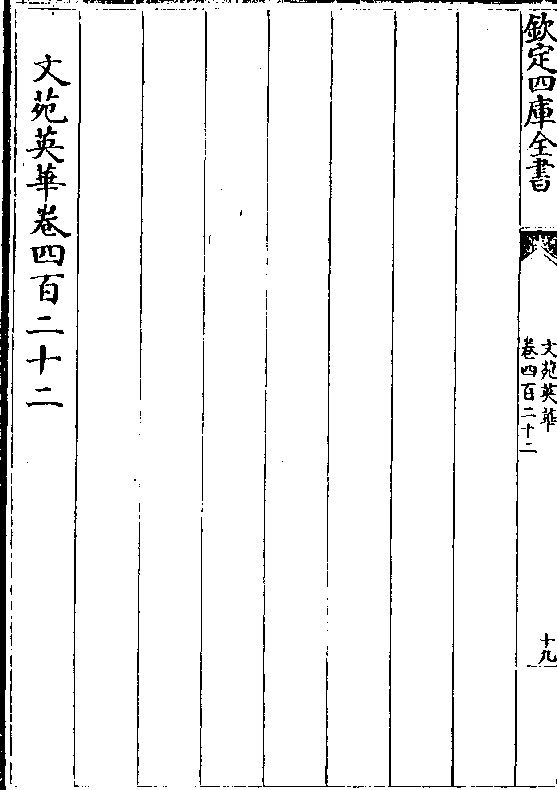 欽定四庫全書
文苑英華
卷四百二十二
十九
文苑英華卷四百二十二